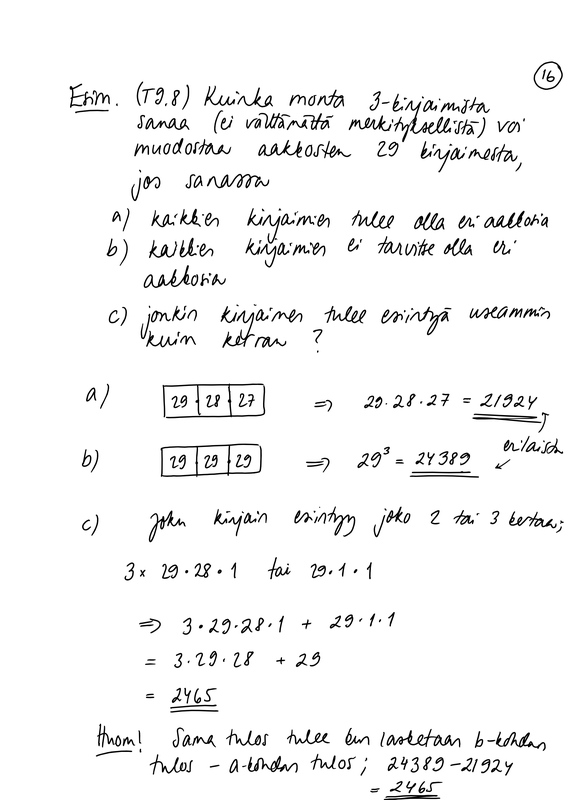 16
Esim. (T9.8) Kuinka monta 3-kirjaimista
sanaa (ei välttämättä merkityksellistä) voi
muodostaa aakkosten 29 kirjaimesta,
jos sanassa
a) kaikkien kirjaimien tulee olla eri aakkosia
b) kaikkien kirjaimien ei tarvitse olla eri
aakkosia
c) jonkin kirjaimen tulee esiintyä useammin
kuin kerran ?
a) 29 · 28 · 27 ⇒ 29·28·27 = 21924
erilaista
b) 29 · 29 · 29 ⇒ 29³ = 24389
c) Joku kirjain esiintyy joko 2 tai 3 kertaa;
3 × 29·28·1 tai 29·1·1
⇒ 3·29·28·1 + 29·1·1
= 3·29·28 + 29
= 2465
Huom! Sama tulos tulee kun lasketaan b-kohdan
tulos – a-kohdan tulos; 24389 – 21924
= 2465